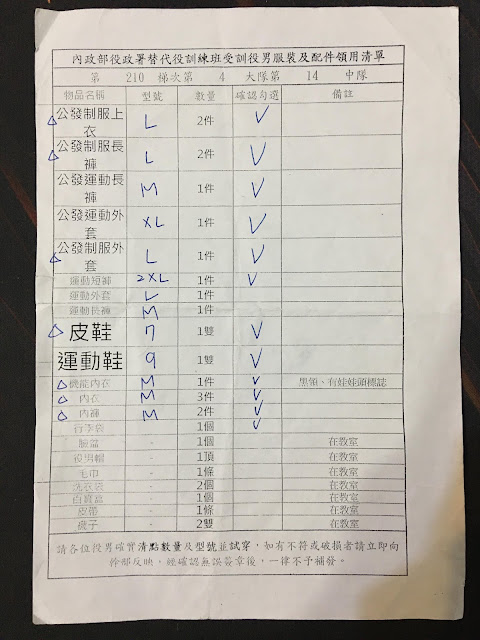 內政部役政署替代役訓練班受訓役男服裝及配件領用清單
第 210 梯次第 4 大隊第 14 中隊
物品名稱 型號 數量 確認勾選 備註
△ 公發制服上衣 L 2件 V
△ 公發制服長褲 L 2件 V
公發運動長褲 M 1件 V
公發運動外套 XL 1件 V
△ 公發制服外套 L 1件 V
運動短褲 2XL 1件 V
運動外套 L 1件
運動長褲 M 1件
△ 皮鞋 7 1雙 V
運動鞋 9 1雙 V
△ 機能內衣 M 1件 V 黑領、有娃娃頭標誌
△ 內衣 M 3件 V
△ 內褲 M 2件 V
行李袋 - 1個 V
臉盆 - 1個 在教室
役男帽 - 1頂 在教室
毛巾 - 1條 在教室
洗衣袋 - 2個 在教室
百寶盒 - 1個 在教室
皮帶 - 1條 在教室
襪子 - 2雙 在教室
請各位役男確實清點數量及型號並試穿，如有不符或破損者請立即向
幹部反映，經確認無誤簽章後，一律不予補發。